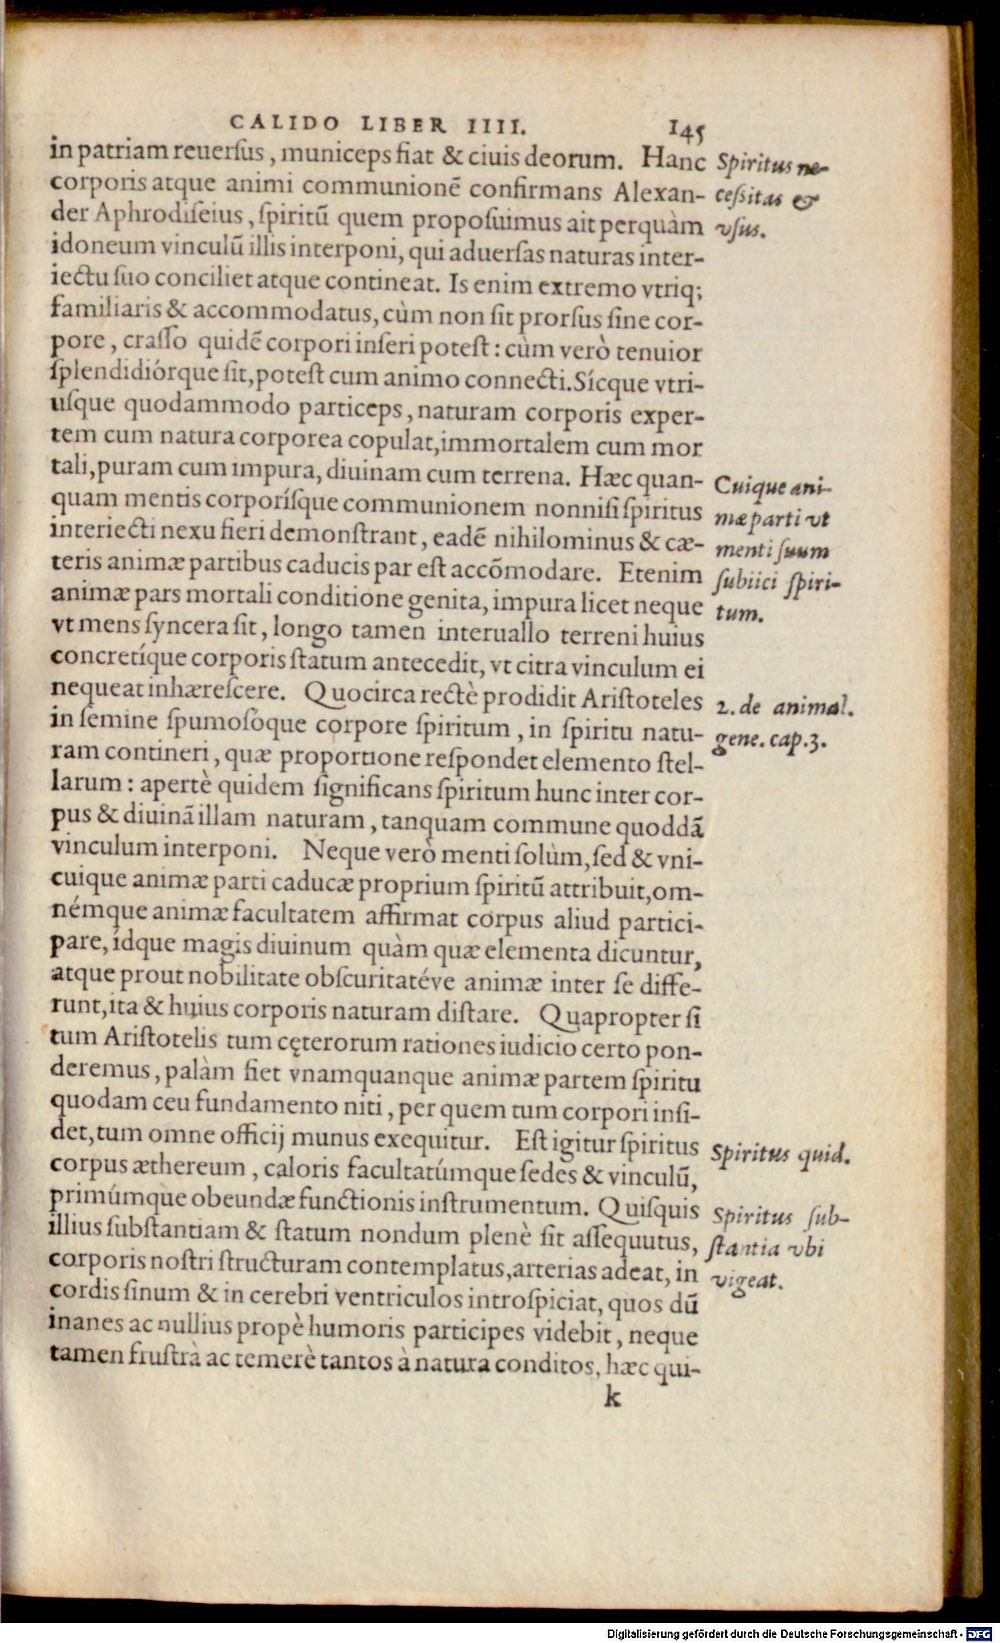 CALIDO LIBER IIII. 145
in patriam reuersus, municeps fiat & ciuis deorum. Hanc
corporis atque animi communionē confirmans Alexan-
der Aphrodiseius, spiritū quem proposuimus ait perquàm
idoneum vinculū illis interponi, qui aduersas naturas inter-
iectu suo conciliet atque contineat. Is enim extremo vtriq;
familiaris & accommodatus, cùm non sit prorsus sine cor-
pore, crasso quidē corpori inseri potest: cùm verò tenuior
splendidiórque sit, potest cum animo connecti. Sícque vtri-
usque quodammodo particeps, naturam corporis exper-
tem cum natura corporea copulat, immortalem cum mor
tali, puram cum impura, diuinam cum terrena. Hæc quan-
quam mentis corporísque communionem nonnisi spiritus
interiecti nexu fieri demonstrant, eadē nihilominus & cæ-
teris animæ partibus caducis par est accōmodare. Etenim
animæ pars mortali conditione genita, impura licet neque
vt mens syncera sit, longo tamen interuallo terreni huius
concretíque corporis statum antecedit, vt citra vinculum ei
nequeat inhærescere. Quocirca rectè prodidit Aristoteles
in semine spumosóque corpore spiritum, in spiritu natu-
ram contineri, quæ proportione respondet elemento stel-
larum: apertè quidem significans spiritum hunc inter cor-
pus & diuinā illam naturam, tanquam commune quoddā
vinculum interponi. Neque verò menti solùm, sed & vni-
cuique animæ parti caducæ proprium spiritū attribuit, om-
némque animæ facultatem affirmat corpus aliud partici-
pare, ídque magis diuinum quàm quæ elementa dicuntur,
atque prout nobilitate obscuritatéve animæ inter se diffe-
runt, ita & huius corporis naturam distare. Quapropter si
tum Aristotelis tum cęterorum rationes iudicio certo pon-
deremus, palàm fiet vnamquanque animæ partem spiritu
quodam ceu fundamento niti, per quem tum corpori insi-
det, tum omne officij munus exequitur. Est igitur spiritus
corpus æthereum, caloris facultatúmque sedes & vinculū,
primúmque obeundæ functionis instrumentum. Quisquis
illius substantiam & statum nondum plenè sit assequutus,
corporis nostri structuram contemplatus, arterias adeat, in
cordis sinum & in cerebri ventriculos introspiciat, quos dū
inanes ac nullius propè humoris participes videbit, neque
tamen frustrà ac temerè tantos à natura conditos, hæc qui-
k
Spiritus ne-
cessitas &
vsus.
Cuique ani-
mæ parti vt
menti suum
subiici spiri-
tum.
2. de animal.
gene. cap. 3.
Spiritus quid.
Spiritus sub-
stantia vbi
vigeat.
Digitalisierung gefördert durch die Deutsche Forschungsgemeinschaft - DFG